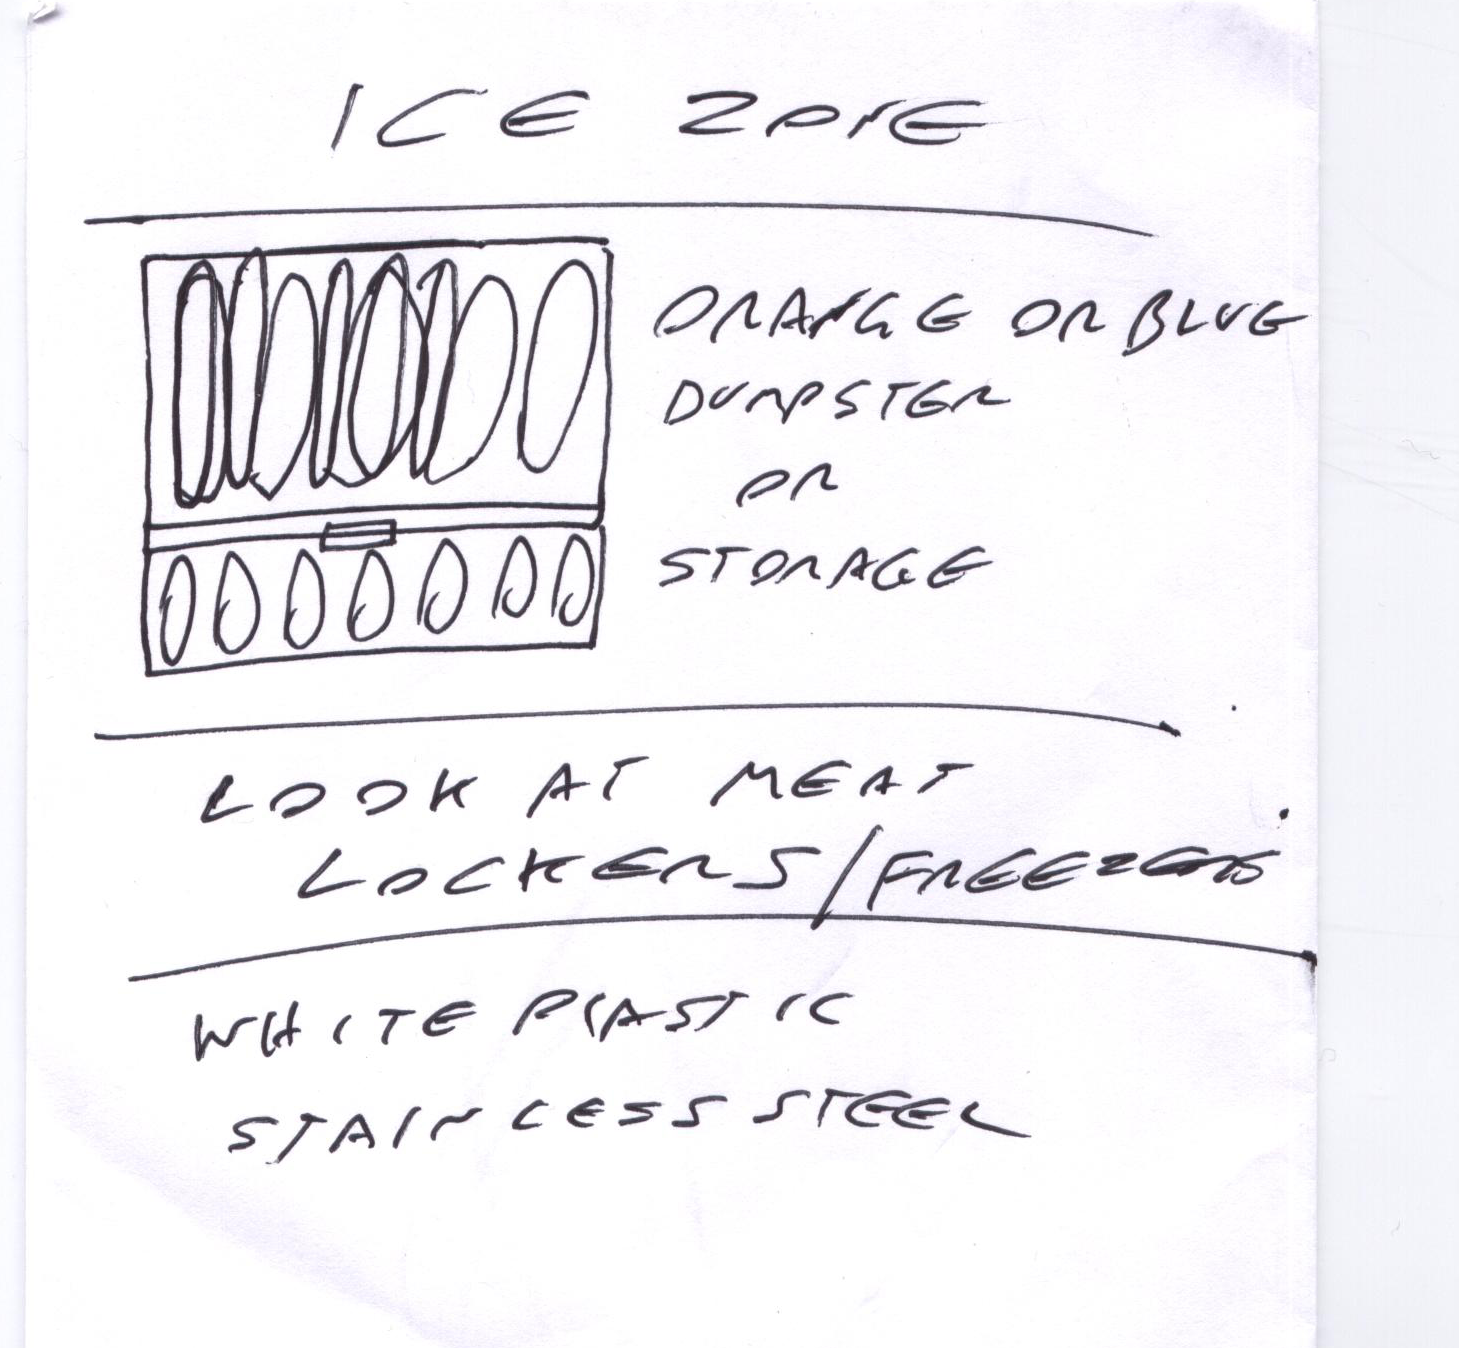 ICE ZONE
ORANGE OR BLUE
DUMPSTER
OR
STORAGE
LOOK AT MEAT
LOCKERS/FREEZERS
WHITE PLASTIC
STAINLESS STEEL